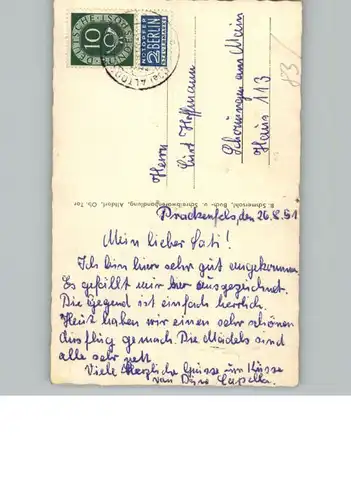 DEUTSCHE BUNDESPOST
10
NOTOPFER
2 BERLIN
STEUERMARKE
ALTDORF
Herrn
Curt Hoffmann
Schonungen am Main
Haus 113
83/
E. Schmersohl, Buch- u. Schreibwarenhandlung, Altdorf, Ob. Tor
Prackenfels, den 26.8.51
Mein lieber Gati!
Ich bin hier sehr gut angekommen.
Es gefällt mir hier ausgezeichnet.
Die Gegend ist einfach herrlich.
Heut haben wir einen sehr schönen
Ausflug gemach. Die Mädels sind
alle sehr nett.
Viele Herzliche Grüsse und Küsse
von